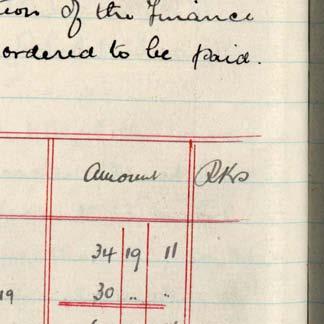 tion of the Finance
ordered to be paid.
Amount Rks
34 19 11
19 30 " "